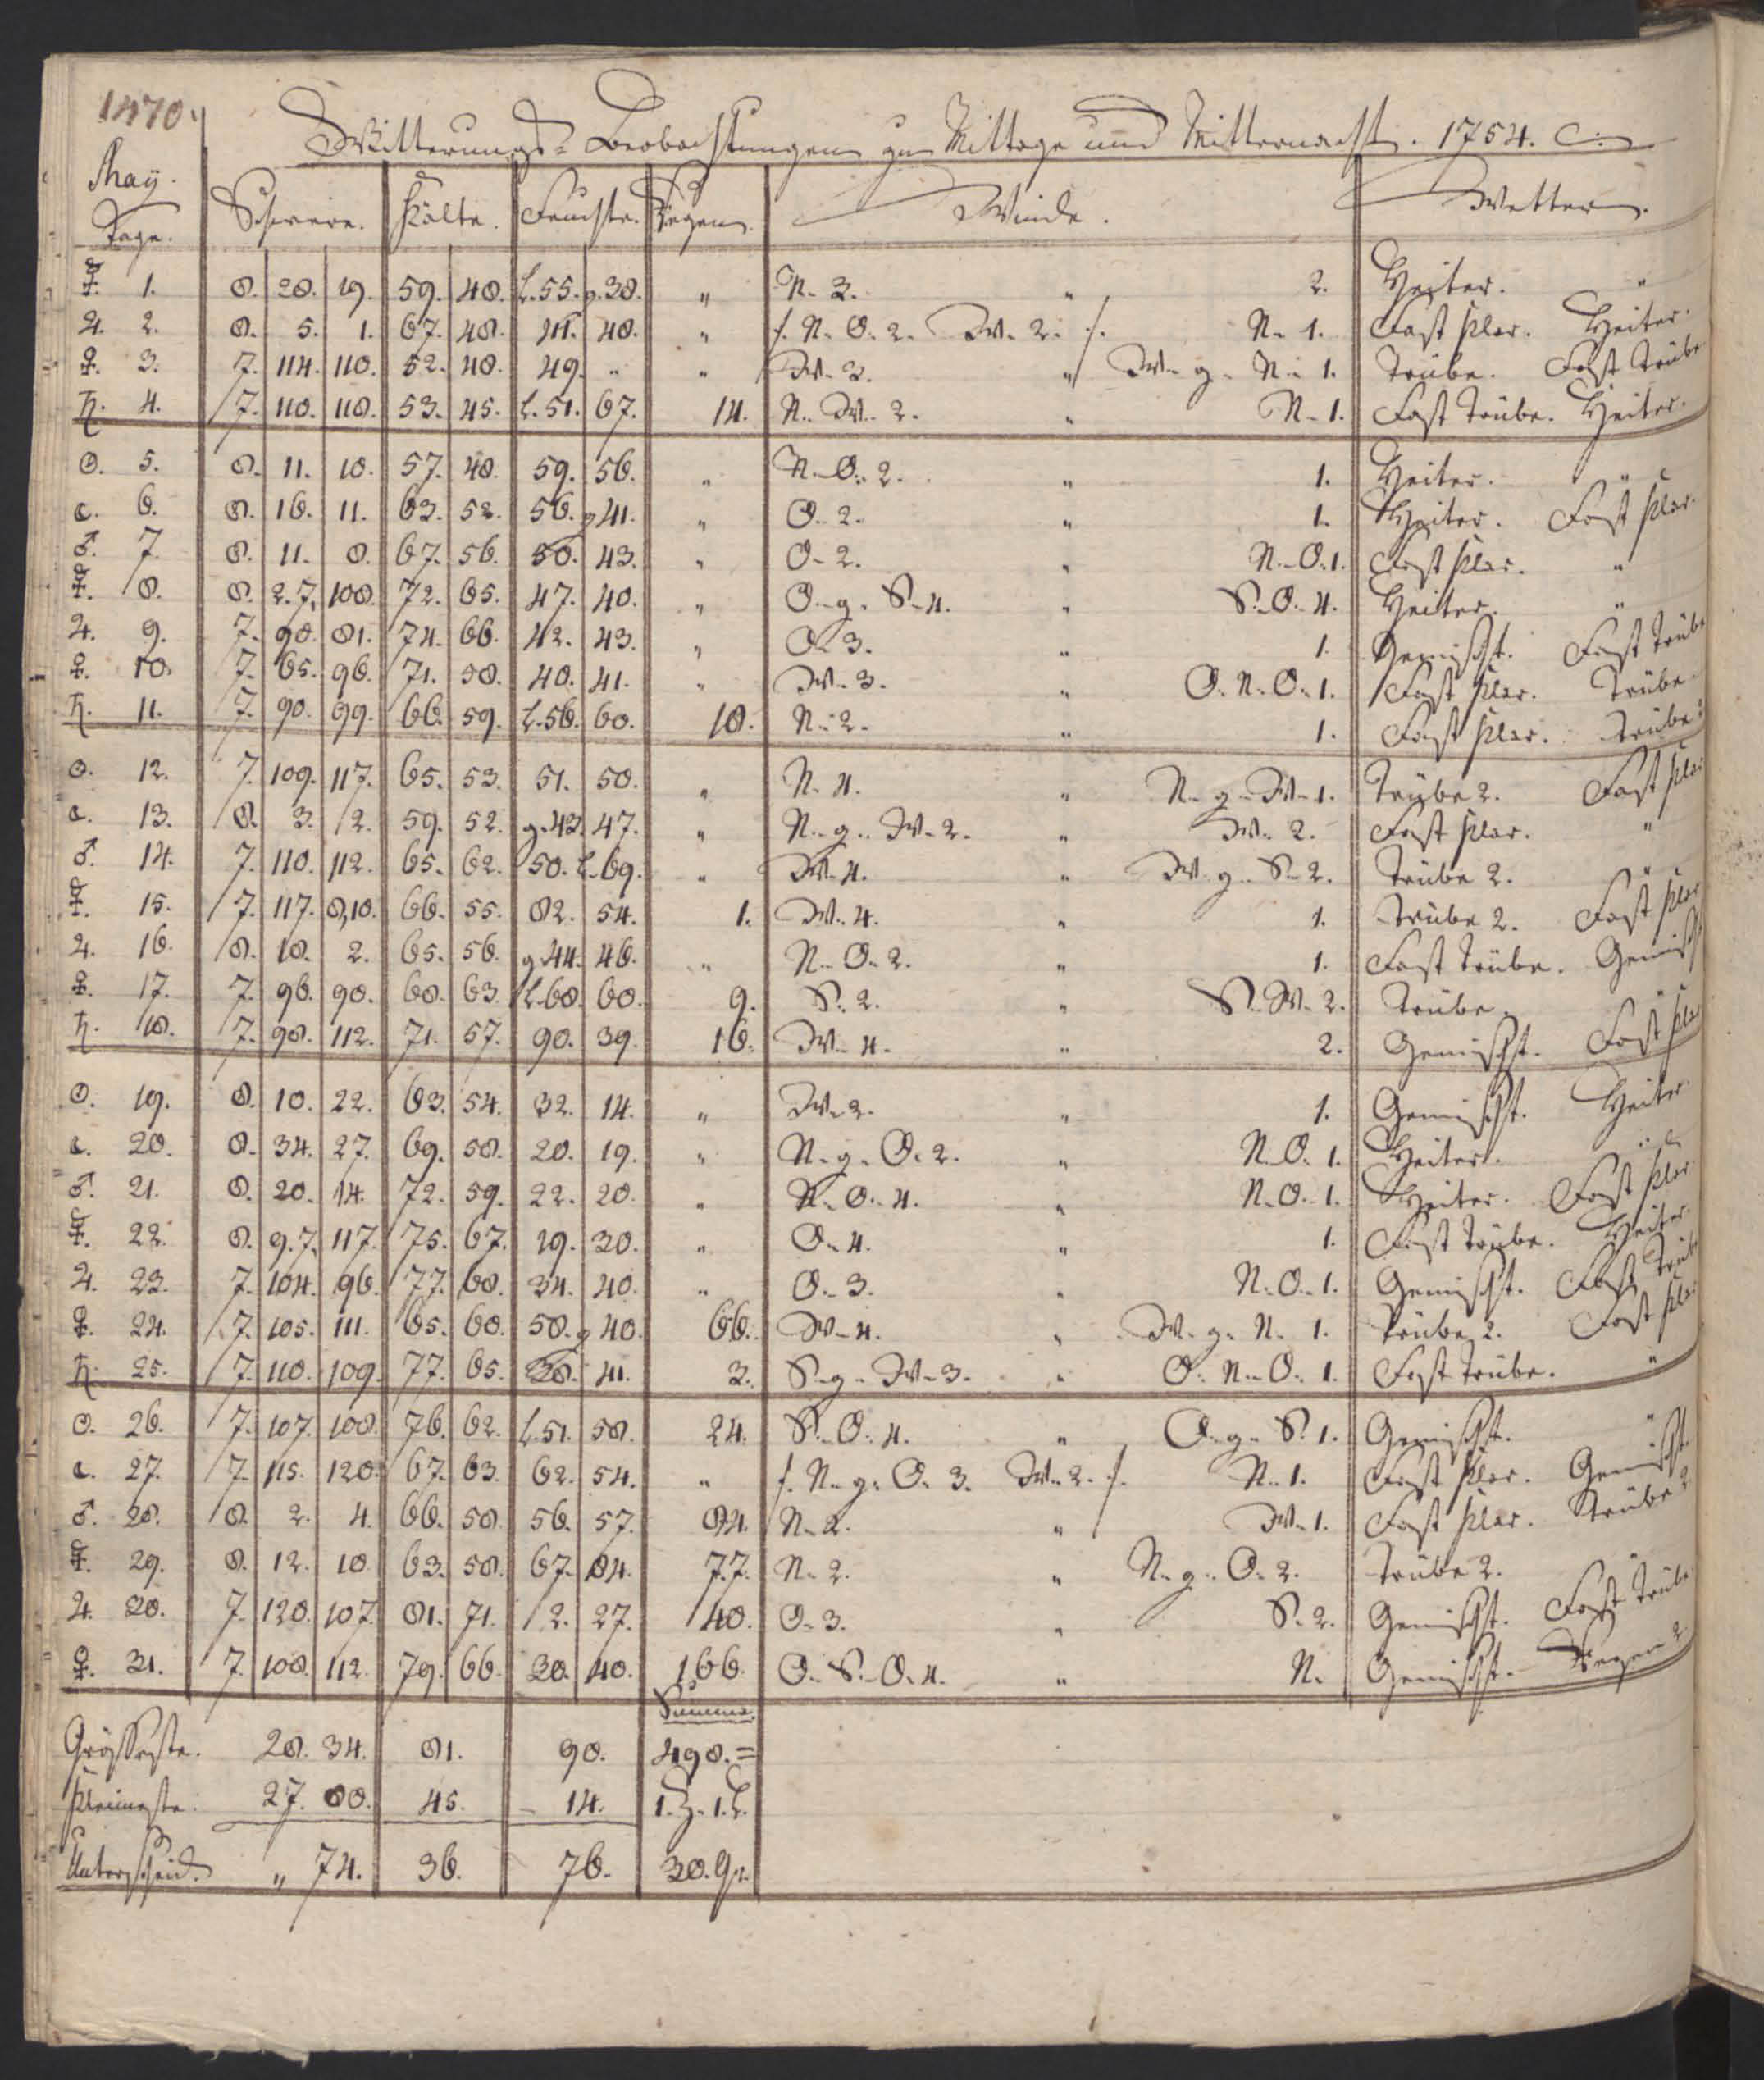 1470.
Witterungs-Beobachtungen zu Mittage und Mitternacht. 1754.
May.
Tage. Schwere. Kälte. Feuchte. Regen. Winde. Wetter.
☿. 1. 8. 28. 19. 59. 48. L.55. g.38. " N. 3. " 2. Heiter. "
♃. 2. 8. 5. 1. 67. 48. 41. 48. " /. N. O. 2. W. 2. /. N. 1. Fast klar. Heiter.
♀. 3. 7. 114. 110. 52. 48. 49. " " W. 3. " W. g. N. 1. Trübe. Fast Trübe
♄. 4. 7. 110. 118. 53. 45. L.51. 67. 14. N. W. 2. " N. 1. Fast Trübe. Heiter.
☉. 5. 8. 11. 10. 57. 48. 59. 56. " N. O. 2. " 1. Heiter. "
☾. 6. 8. 16. 11. 63. 52. 56. g.41. " O. 2. " 1. Heiter. Fast klar.
♂. 7. 8. 11. 8. 67. 56. 50. 43. " O. 2. " N. O. 1. Fast klar. "
☿. 8. 8. 2. 7. 108. 72. 65. 47. 40. " O. g. S. 4. " S. O. 4. Heiter. "
♃. 9. 7. 98. 81. 74. 66. 42. 43. " O. 3. " 1. Gemischt. Fast Trübe
♀. 10. 7. 65. 96. 71. 58. 40. 41. " W. 3. " O. N. O. 1. Fast klar. Trübe.
♄. 11. 7. 90. 99. 66. 59. L.56. 60. 18. N. 2. " 1. Fast klar. Trübe 2
☉. 12. 7. 109. 117. 65. 53. 51. 50. " N. 4. " N. g. W. 1. Trübe 2. Fast klar
☾. 13. 8. 3. 2. 59. 52. g.43. 47. " N. g. W. 2. " W. 2. Fast klar. "
♂. 14. 7. 110. 112. 65. 62. 50. L.69. " W. 4. " W. g. S. 2. Trübe 2. "
☿. 15. 7. 117. 8,10. 66. 55. 82. 54. 1. W. 4. " 1. Trübe 2. Fast klar
♃. 16. 8. 18. 2. 65. 56. g.44. 46. " N. O. 2. " 1. Fast Trübe. Gemischt
♀. 17. 7. 96. 90. 68. 63. L.68. 60. 9. S. 2. " S. W. 2. Trübe. "
♄. 18. 7. 98. 112. 71. 57. 90. 39. 16. W. 4. " 2. Gemischt. Fast klar
☉. 19. 8. 10. 22. 63. 54. 32. 14. " W. 2. " 1. Gemischt. Heiter
☾. 20. 8. 34. 27. 69. 58. 20. 19. " N. g. O. 2. " N. O. 1. Heiter. "
♂. 21. 8. 20. 14. 72. 59. 22. 20. " N. O. 4. " N. O. 1. Heiter. Fast klar.
☿. 22. 8. 9. 7. 117. 75. 67. 19. 30. " O. 4. " 1. Fast Trübe. Heiter.
♃. 23. 7. 104. 96. 77. 68. 34. 40. " O. 3. " N. O. 1. Gemischt. Fast Trübe
♀. 24. 7. 105. 111. 65. 60. 50. g.40. 66. W. 4. " W. g. N. 1. Trübe 2. Fast klar
♄. 25. 7. 110. 109. 77. 65. 38. 41. 3. S. g. W. 3. " O. N. O. 1. Fast Trübe. "
☉. 26. 7. 107. 108. 76. 62. L.51. 58. 24. S. O. 4. " O. g. S. 1. Gemischt. "
☾. 27. 7. 115. 120. 67. 63. 62. 54. " /. N. g. O. 3. W. 2. /. N. 1. Fast klar. Gemischt.
♂. 28. 8. 2. 4. 66. 58. 56. 57. 84. N. 2. " W. 1. Fast klar. Trübe 2
☿. 29. 8. 12. 10. 63. 58. 67. 84. 77. N. 2. " N. g. O. 2. Trübe 2. "
♃. 30. 7. 120. 107. 81. 71. 2. 27. 40. O. 3. " S. 2. Gemischt. Fast Trübe
♀. 31. 7. 108. 112. 79. 66. 30. 40. 166. O. S. O. 4. " N. Gemischt. Regen 2.
Summe.
Grösseste. 28. 34. 81. 90. 498. =
Kleineste. 27. 80. 45. 14. 1. Z. 1. L.
Unterscheid. " 74. 36. 76. 30. Gr.